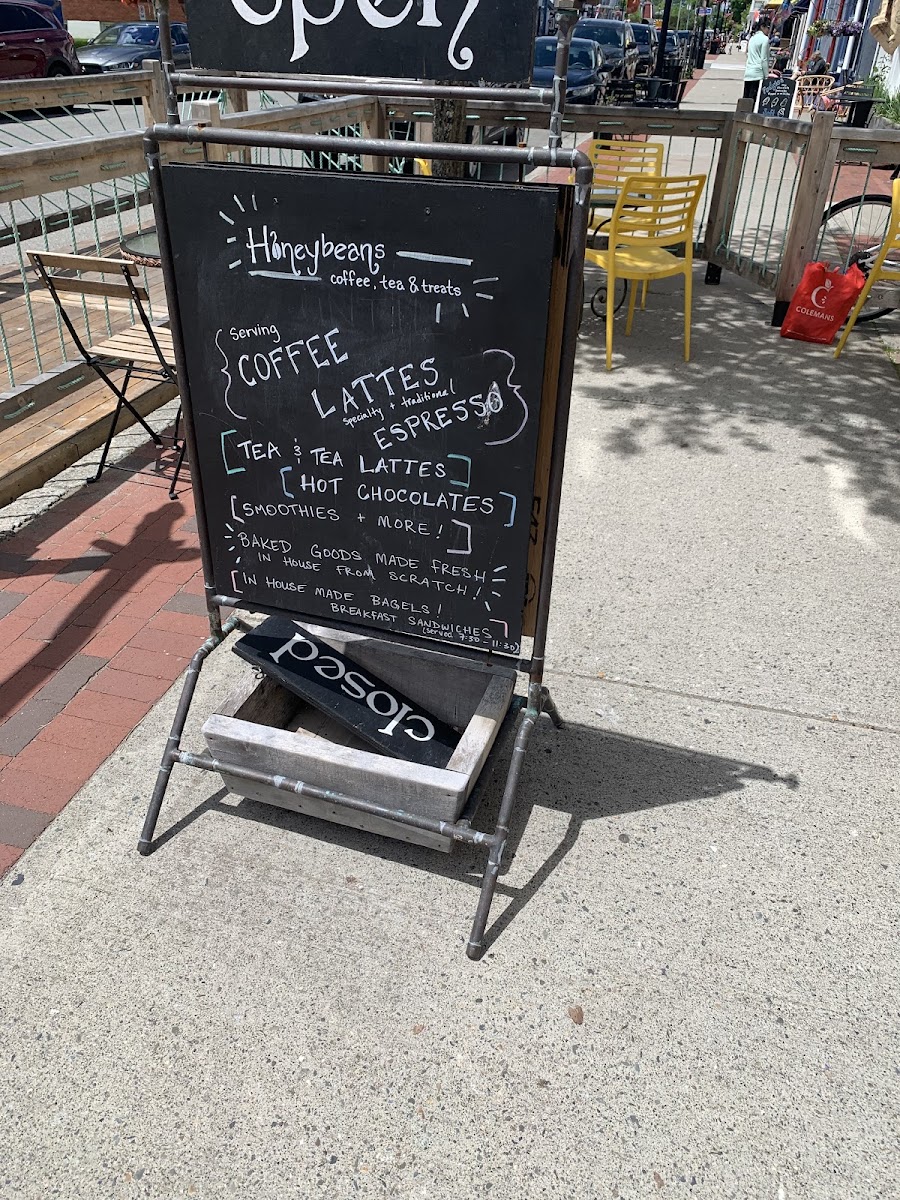 open
Honeybeans
coffee, tea & treats
Serving
COFFEE
LATTES
specialty + traditional
ESPRESSO
TEA & TEA LATTES
HOT CHOCOLATES
SMOOTHIES + MORE!
BAKED GOODS MADE FRESH
IN HOUSE FROM SCRATCH!
IN HOUSE MADE BAGELS!
BREAKFAST SANDWICHES
(served 7:30 - 11:30)
closed
COLEMANS